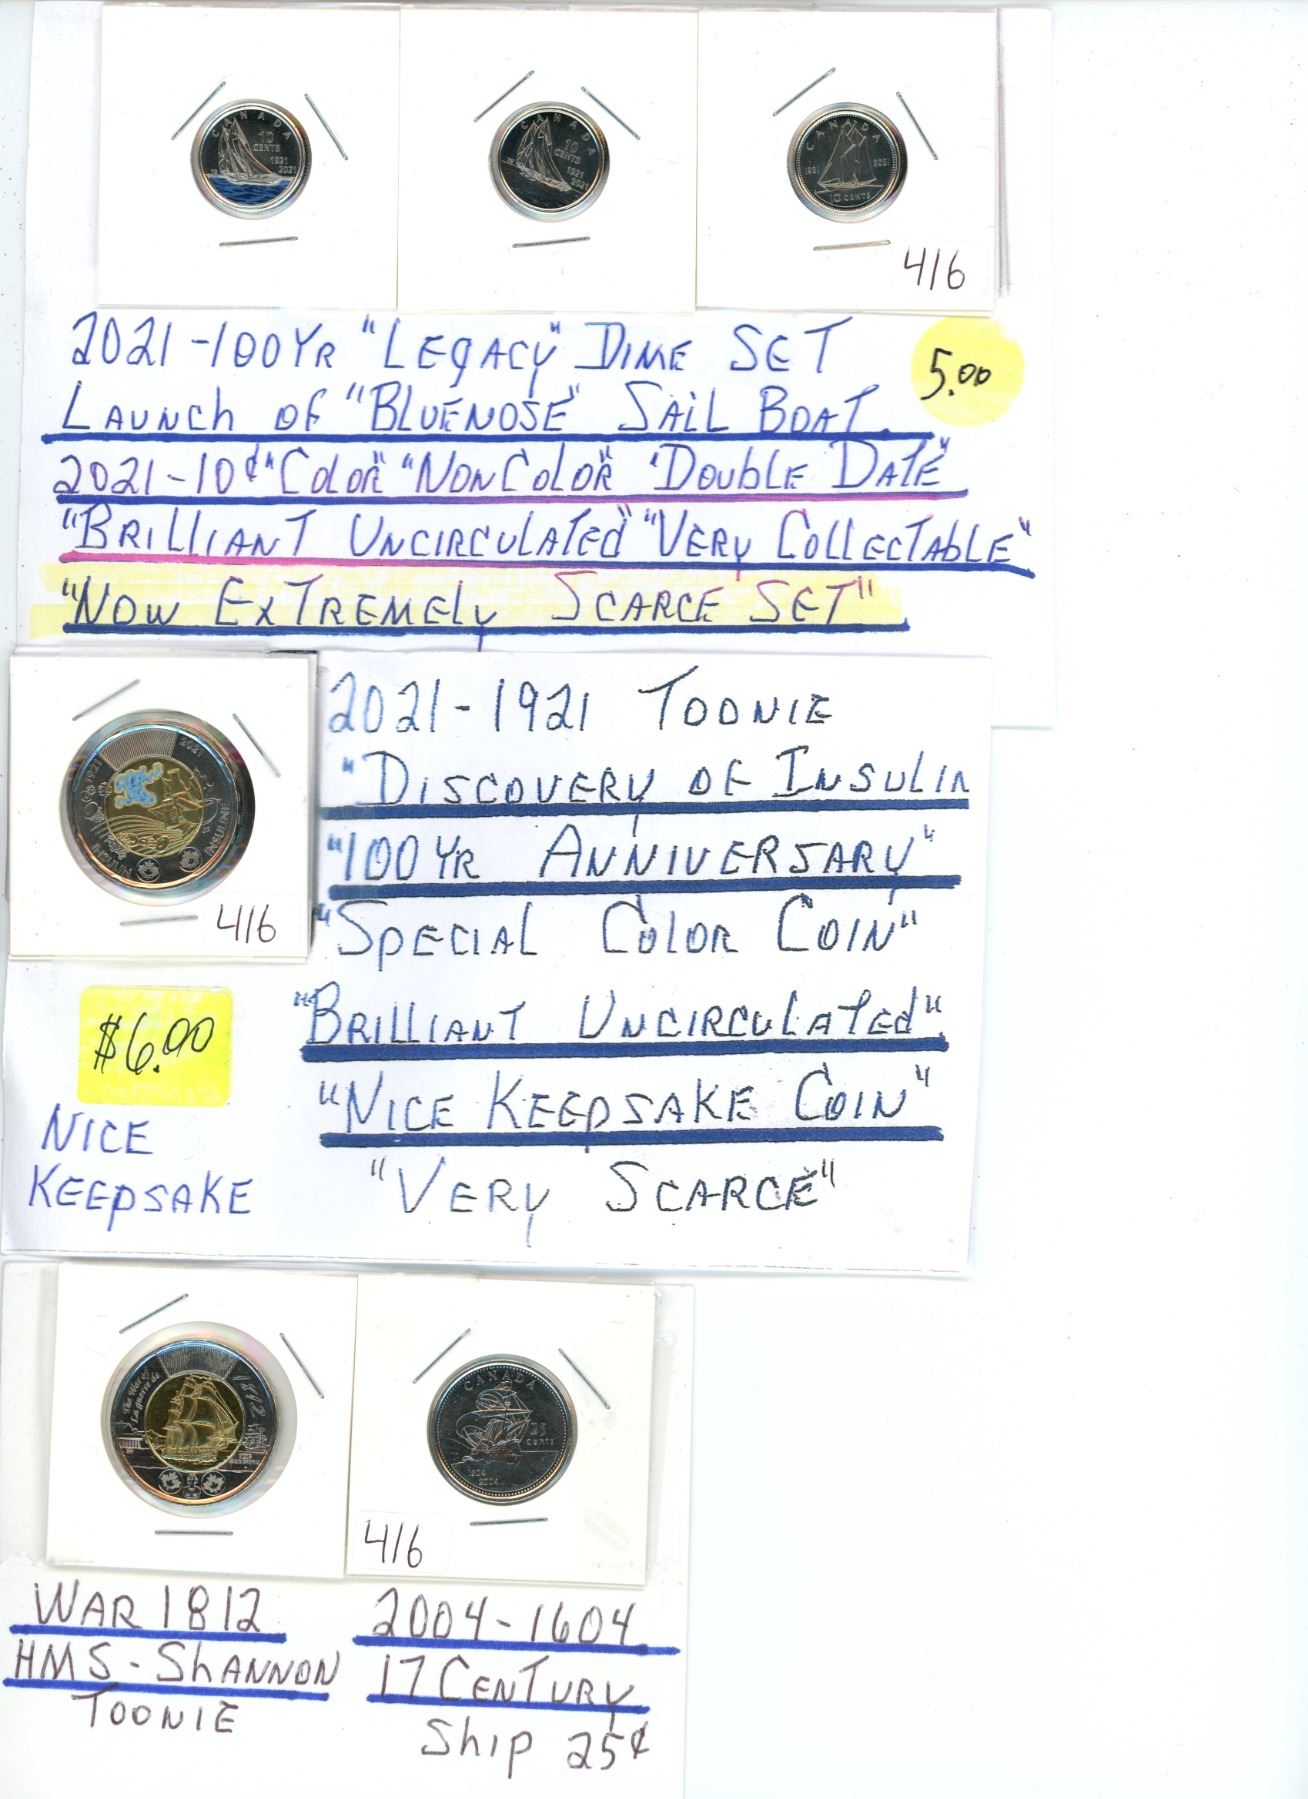 CANADA
10
CENTS
1921
2021
CANADA
10
CENTS
1921
2021
CANADA
1921 2021
10 CENTS
416
2021-100YR "LEGACY" DIME SET
LAUNCH OF "BLUENOSE" SAIL BOAT.
5.00
2021-10¢ "COLOR" "NONCOLOR" "DOUBLE DATE"
"BRILLIANT UNCIRCULATED" "VERY COLLECTABLE"
"NOW EXTREMELY SCARCE SET"
1921 2021
INSULIN INSULINE
416
2021-1921 TOONIE
"DISCOVERY OF INSULIN
"100YR ANNIVERSARY"
"SPECIAL COLOR COIN"
"BRILLIANT UNCIRCULATED"
"NICE KEEPSAKE COIN"
"VERY SCARCE"
$6.00
NICE
KEEPSAKE
The War of
La guerre de
1812
CANADA
25
cents
1604
2004
416
WAR 1812
HMS-SHANNON
TOONIE
2004-1604
17 CENTURY
Ship 25¢